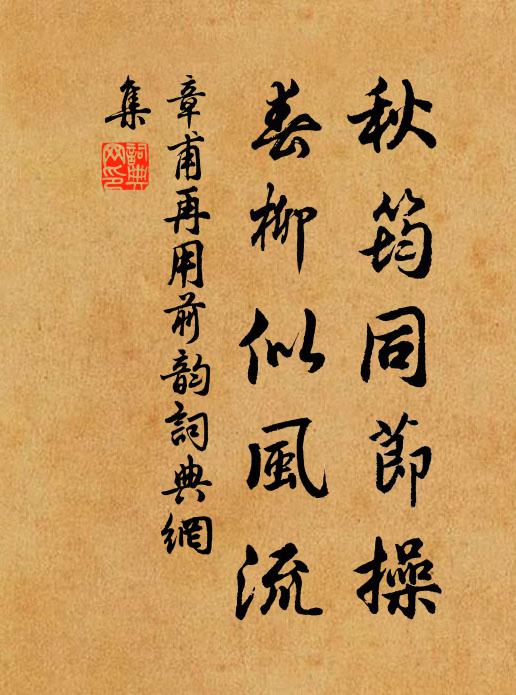 秋筠同節操
春柳似風流
章甫再用前韵詞典網
集
詞典
网印